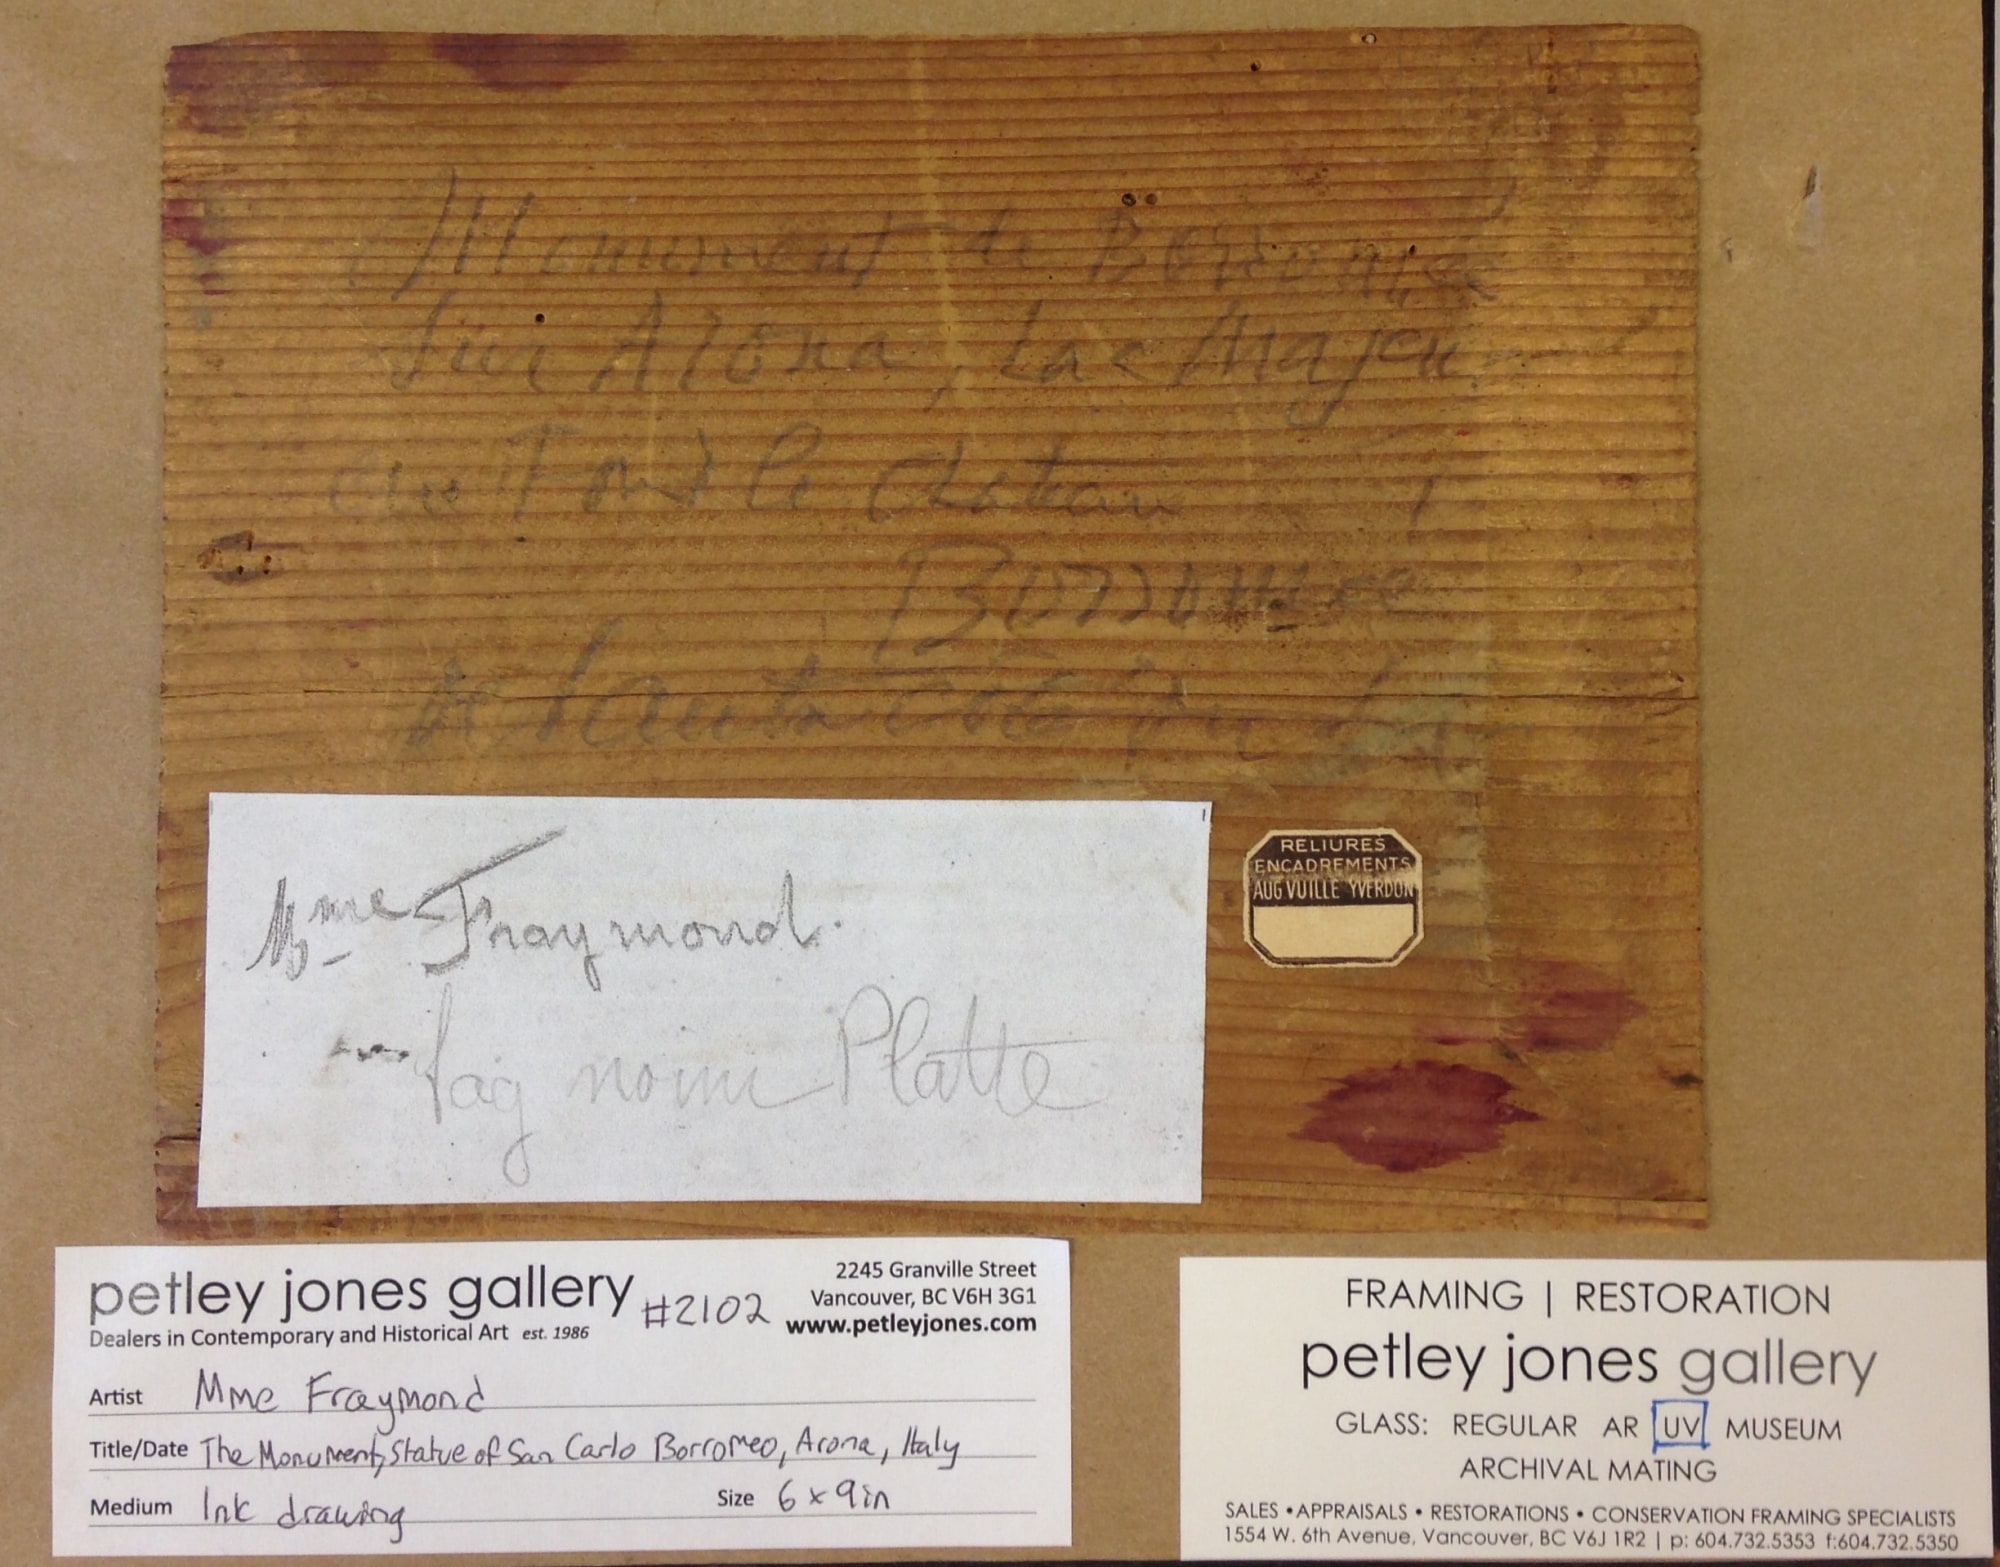 Monument de Borromée
sur Arona, Lac Majeur
au Fond le chateau
Borromée
de l'autre côté du
Mme Fraymond.
fag noir Platte
RELIURES
ENCADREMENTS
AUG.VUILLE YVERDON
petley jones gallery #2102
Dealers in Contemporary and Historical Art est. 1986
2245 Granville Street
Vancouver, BC V6H 3G1
www.petleyjones.com
Artist Mme Fraymond
Title/Date The Monument, Statue of San Carlo Borromeo, Arona, Italy
Medium Ink drawing Size 6 x 9 in
FRAMING | RESTORATION
petley jones gallery
GLASS: REGULAR AR UV MUSEUM
ARCHIVAL MATING
SALES • APPRAISALS • RESTORATIONS • CONSERVATION FRAMING SPECIALISTS
1554 W. 6th Avenue, Vancouver, BC V6J 1R2 | p: 604.732.5353 f:604.732.5350